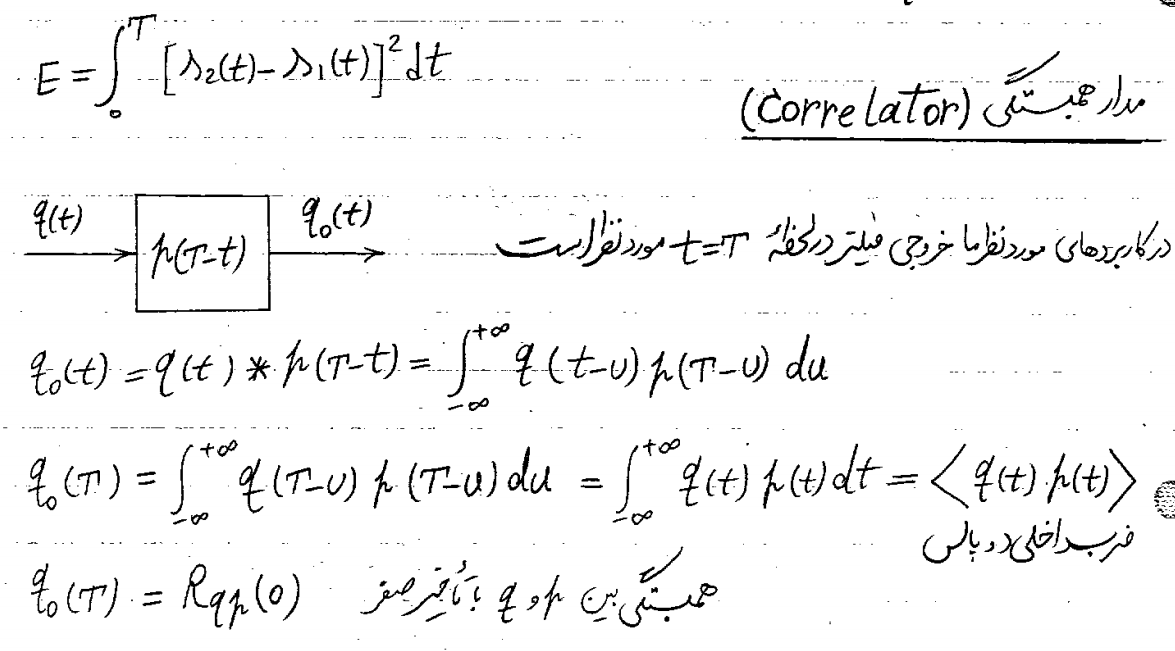 E = ∫₀ᵀ [s₂(t) - s₁(t)]² dt
مدار همبستگی (Correlator)
q(t) p(T-t) q₀(t)
در کاربردهای مورد نظر ما خروجی فیلتر در لحظهٔ t=T مورد نظر است
q₀(t) = q(t) * p(T-t) = ∫_{-∞}^{+∞} q(t-u) p(T-u) du
q₀(T) = ∫_{-∞}^{+∞} q(T-u) p(T-u) du = ∫_{-∞}^{+∞} q(t) p(t) dt = ⟨q(t) . p(t)⟩
ضرب داخلی دو پالس
q₀(T) = R_{qp}(0) همبستگی بین p و q با تأخیر صفر